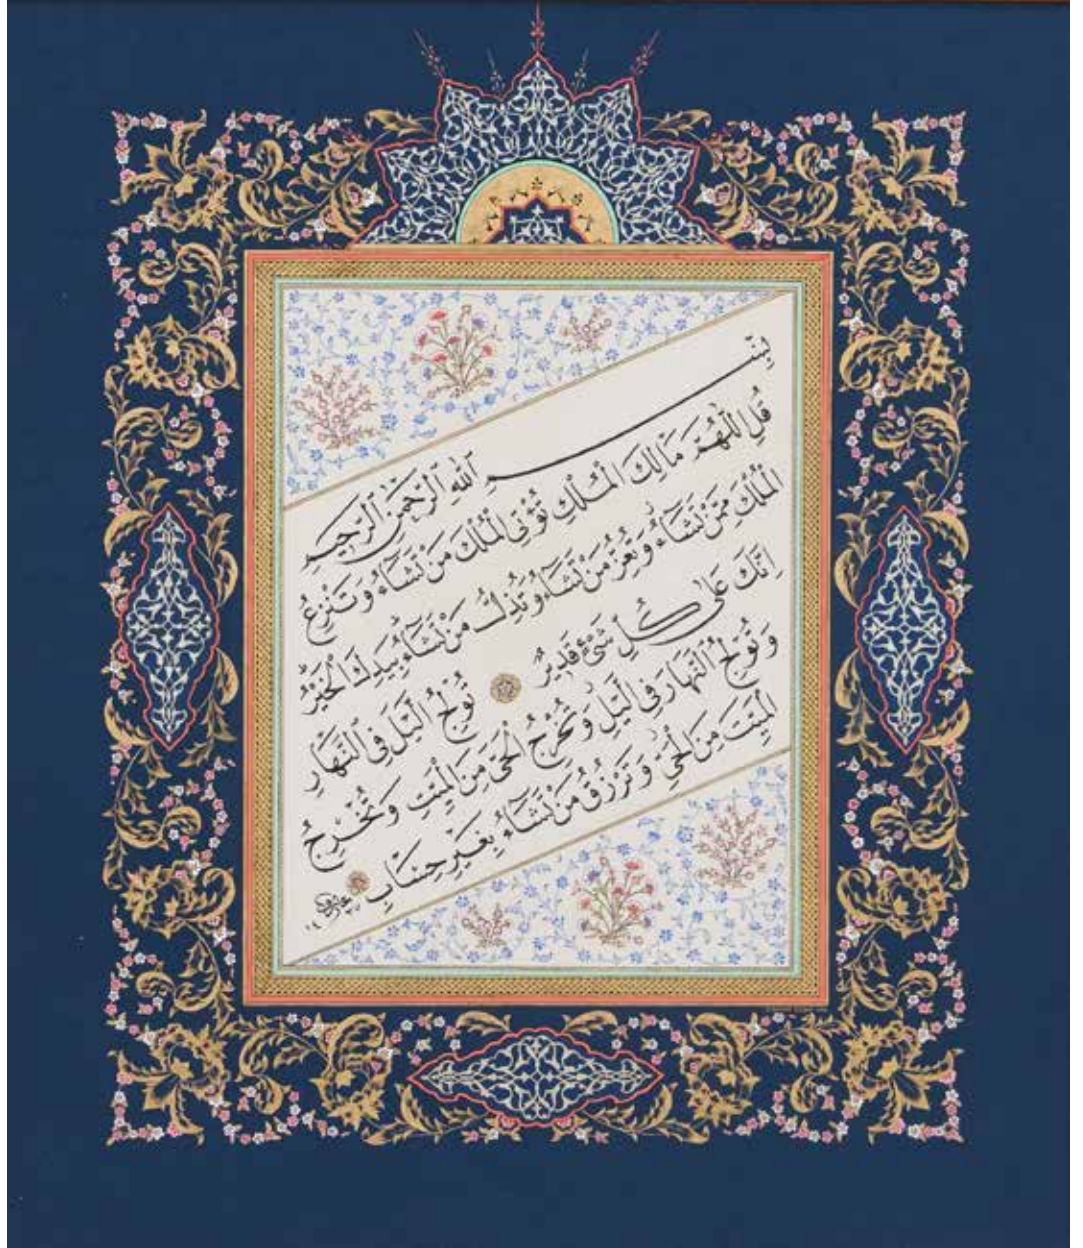 بِسْمِ اللّٰهِ الرَّحْمٰنِ الرَّحِيمِ
قُلِ اللّٰهُمَّ مَالِكَ الْمُلْكِ تُؤْتِي الْمُلْكَ مَنْ تَشَاءُ وَتَنْزِعُ
الْمُلْكَ مِمَّنْ تَشَاءُ وَتُعِزُّ مَنْ تَشَاءُ وَتُذِلُّ مَنْ تَشَاءُ بِيَدِكَ الْخَيْرُ
اِنَّكَ عَلٰى كُلِّ شَيْءٍ قَدِيرٌ تُولِجُ الَّيْلَ فِي النَّهَارِ
وَتُولِجُ النَّهَارَ فِي الَّيْلِ وَتُخْرِجُ الْحَيَّ مِنَ الْمَيِّتِ وَتُخْرِجُ
الْمَيِّتَ مِنَ الْحَيِّ وَتَرْزُقُ مَنْ تَشَاءُ بِغَيْرِ حِسَابٍ